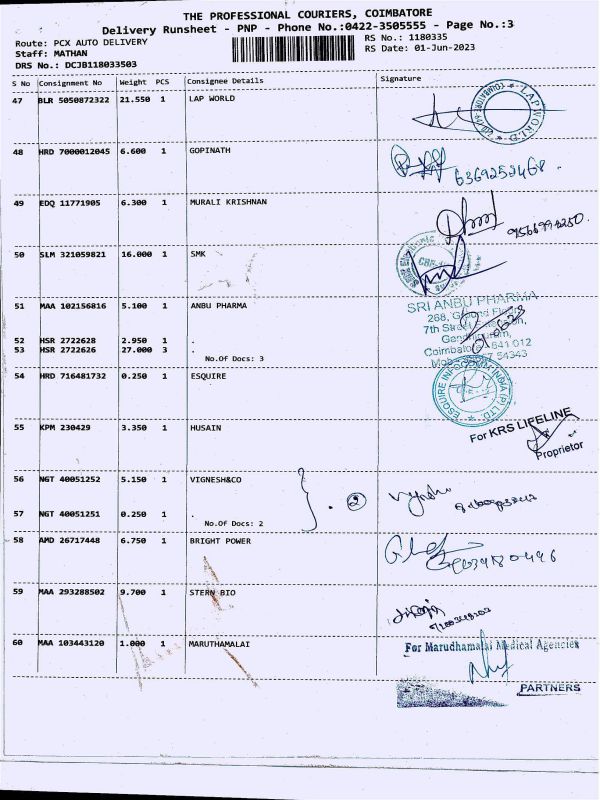 THE PROFESSIONAL COURIERS, COIMBATORE
Delivery Runsheet - PNP - Phone No.:0422-3505555 - Page No.:3
Route: PCX AUTO DELIVERY RS No.: 1180335
Staff: MATHAN RS Date: 01-Jun-2023
DRS No.: DCJB118033503
S No Consignment No Weight PCS Consignee Details Signature
47 BLR 5050872322 21.550 1 LAP WORLD
LAP WORLD
48 HRD 7000012045 6.600 1 GOPINATH
6369252468.
49 EDQ 11771905 6.300 1 MURALI KRISHNAN
50 SLM 321059821 16.000 1 SMK
51 MAA 102156816 5.100 1 ANBU PHARMA
SRI ANBU PHARMA
52 HSR 2722628 2.950 1 .
53 HSR 2722626 27.000 3 .
No.Of Docs: 3
54 HRD 716481732 0.250 1 ESQUIRE
55 KPM 230429 3.350 1 HUSAIN
For KRS LIFELINE
Proprietor
56 NGT 40051252 5.150 1 VIGNESH&CO
2
57 NGT 40051251 0.250 1 .
No.Of Docs: 2
58 AMD 26717448 6.750 1 BRIGHT POWER
59 MAA 293288502 9.700 1 STERN BIO
60 MAA 103443120 1.000 1 MARUTHAMALAI
For Marudhamalai Medical Agencies
PARTNERS